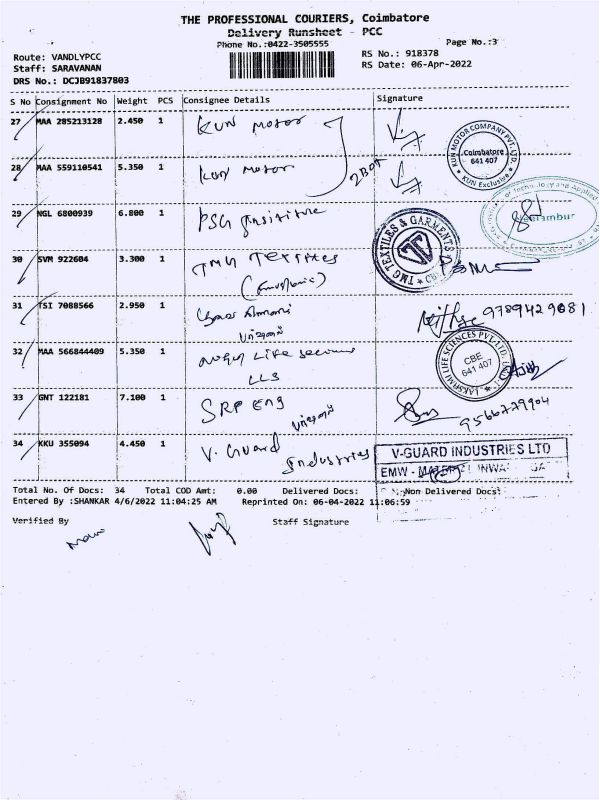 THE PROFESSIONAL COURIERS, Coimbatore
Delivery Runsheet - PCC
Phone No.:0422-3505555
Page No.:3
Route: VANDLYPCC
RS No.: 918378
Staff: SARAVANAN
RS Date: 06-Apr-2022
DRS No.: DCJB91837803
S No Consignment No Weight PCS Consignee Details Signature
27 MAA 285213128 2.450 1 KUN motor
KUN MOTOR COMPANY PVT. LTD.
Coimbatore
641 407
KUN Exclusive
28 MAA 559110541 5.350 1 KUN motor
29 NGL 6800939 6.800 1 PSG Institute
of Technology and Applied
30 SVM 922604 3.300 1 TMG Textiles
TMG TEXTILES & GARMENTS
31 TSI 7088566 2.950 1
9789429081
32 MAA 566844409 5.350 1 Life
LLS
LAKSHMI LIFE SCIENCES PVT. LTD.
CBE
641 407
33 GNT 122181 7.100 1 SRP Eng
9566779904
34 KKU 355094 4.450 1 V. Guard
Industries
V-GUARD INDUSTRIES LTD
Total No. Of Docs: 34 Total COD Amt: 0.00 Delivered Docs: Non Delivered Docs:
Entered By :SHANKAR 4/6/2022 11:04:25 AM Reprinted On: 06-04-2022 11:06:59
Verified By Staff Signature